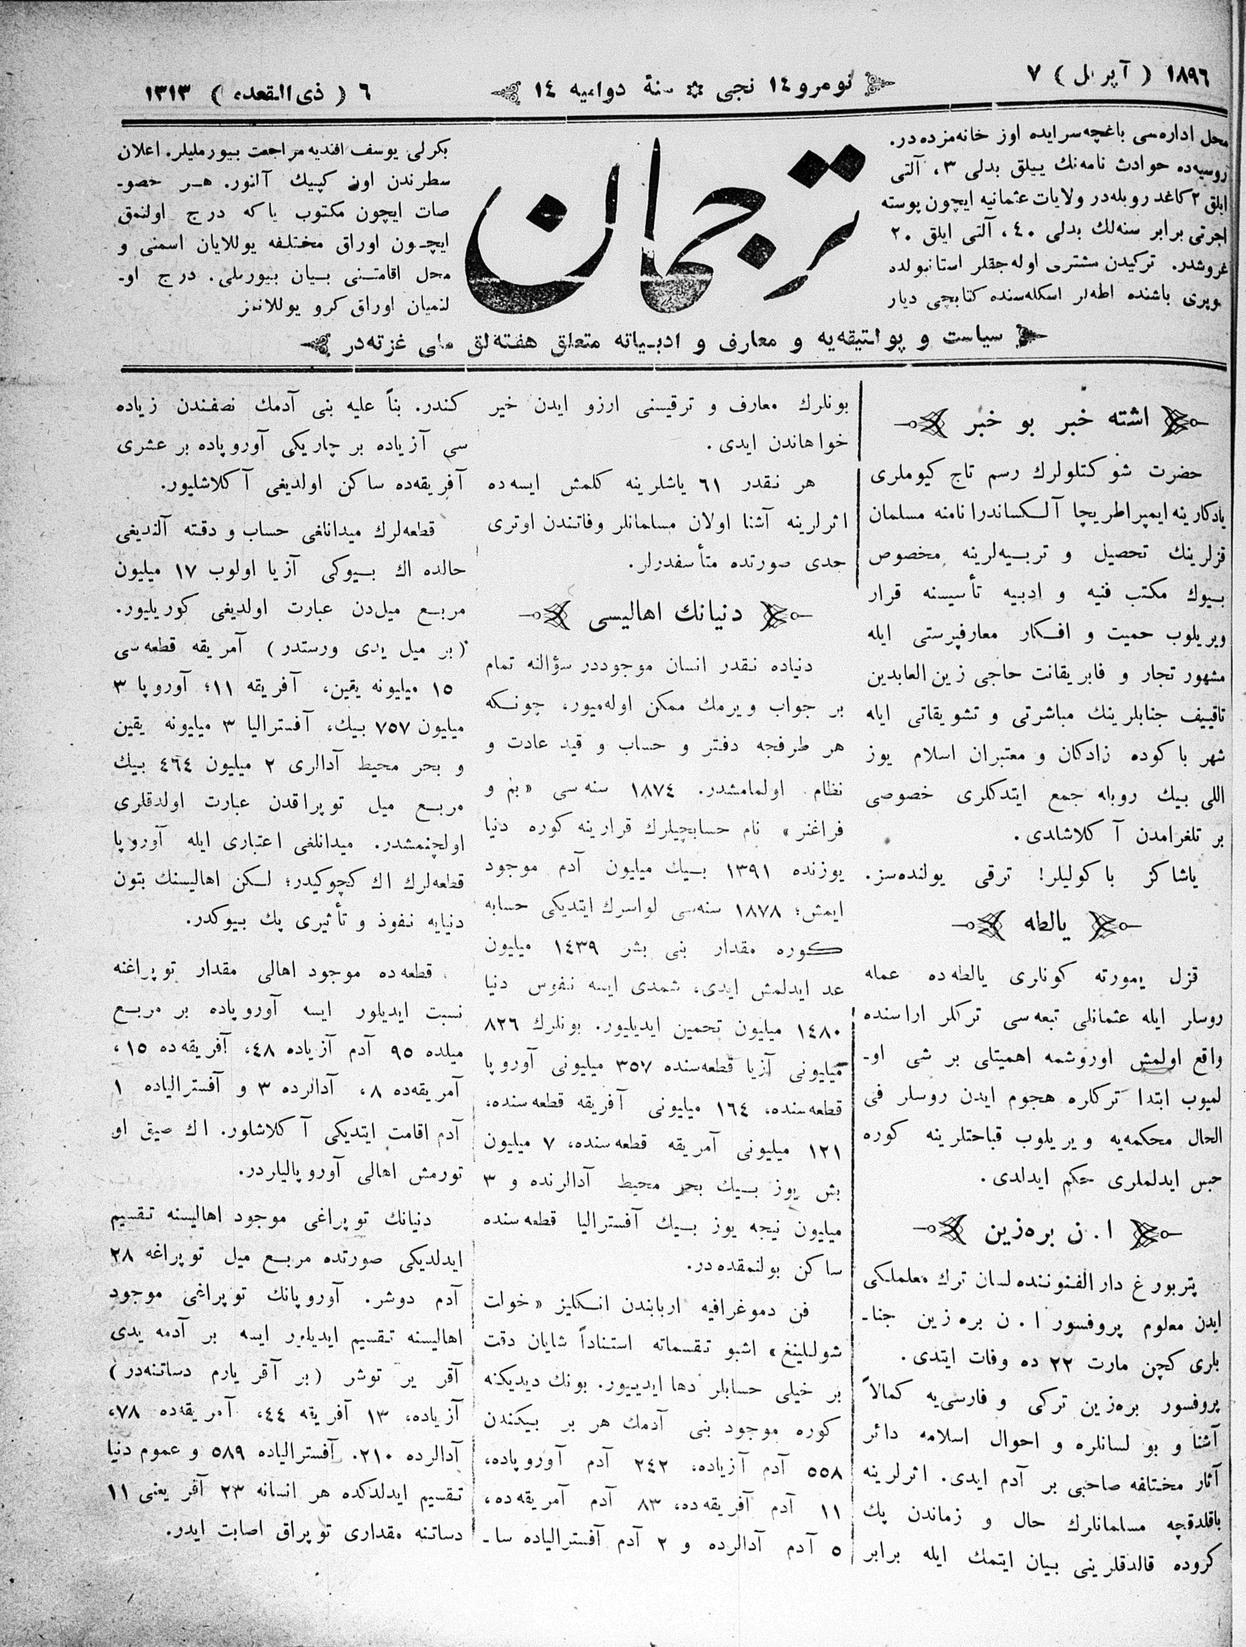 ١٨٩٦ ( آپریل ) ٧
نومرو ١٤ نجی ✲ سنهٔ دوامیه ١٤
٦ ( ذی القعده ) ١٣١٣
محل اداره‌سی باغچه‌سرایده اوز خانه‌مزده‌در.
روسیه‌ده حوادث نامه‌نك ییلق بدلی ٣، آلتی
ایلق ٢ كاغد روبله‌در ولایات عثمانیه ایچون پوسته
اجرتی برابر سنه‌لك بدلی ٤٠، آلتی ایلق ٢٠
غروشدر. تركیدن مشتری اوله‌جقلر استانبولده
كوپری باشنده اطه‌لر اسكله‌سنده كتابچی دیار
ترجمان
بكرلی یوسف افندیه مراجعت بیورملیلر. اعلان
سطرندن اون كپیك آلنور. هر خصو-
صات ایچون مكتوب یاكه درج اولنمق
ایچون اوراق مختلفه یوللایان اسمنی و
محل اقامتنی بیان بیورملی. درج او-
لنمیان اوراق كرو یوللانمز
سیاست و پولتیقه‌یه و معارف و ادبیاته متعلق هفته‌لق ملی غزته‌در
اشته خبر بو خبر
حضرت شوكتلولرك رسم تاج كیوملری
یادكارینه ایمپراطریچا آلكساندرا نامنه مسلمان
قزلرینك تحصیل و تربیه‌لرینه مخصوص
بیوك مكتب فنیه و ادبیه تأسیسنه قرار
ویریلوب حمیت و افكار معارفپرستی ایله
مشهور تجار و فابریقانت حاجی زین العابدین
تاقییف جنابلرینك مباشرتی و تشویقاتی ایله
شهر باكوده زادكان و معتبران اسلام یوز
اللی بیك روبله جمع ایتدكلری خصوصی
بر تلغرامدن آكلاشلدی.
یاشاكز باكولیلر! ترقی یولنده‌سز.
یالطه
قزل یمورته كونلری یالطه‌ده عمله
روسلر ایله عثمانلی تبعه‌سی تركلر اراسنده
واقع اولمش اوروشمه اهمیتلی بر شی او-
لمیوب ابتدا تركلره هجوم ایدن روسلر فی
الحال محكمه‌یه ویریلوب قباحتلرینه كوره
حبس ایدلملری حكم ایدلدی.
ا. ن بره‌زین
پتربورغ دار الفنوننده لسان ترك معلملكی
ایدن معلوم پروفسور ا. ن بره‌زین جنا-
بلری كچن مارت ٢٢ ده وفات ایتدی.
پروفسور بره‌زین تركی و فارسی‌یه كمالاً
آشنا و بو لسانلره و احوال اسلامه دائر
آثار مختلفه صاحبی بر آدم ایدی. اثرلرینه
باقلدقچه مسلمانلرك حال و زماندن پك
كروده قالدقلرینی بیان ایتمك ایله برابر
بونلرك معارف و ترقیسنی ارزو ایدن خیر
خواهاندن ایدی.
هر نقدر ٦١ یاشلرینه كلمش ایسه‌ده
اثرلرینه آشنا اولان مسلمانلر وفاتندن اوتری
جدی صورتده متأسفدرلر.
دنیانك اهالیسی
دنیاده نقدر انسان موجوددر سؤالنه تمام
بر جواب ویرمك ممكن اوله‌میور، چونكه
هر طرفجه دفتر و حساب و قید عادت و
نظام اولمامشدر. ١٨٧٤ سنه‌سی «بم و
فراغنر» نام حسابچیلرك قرارینه كوره دنیا
یوزنده ١٣٩١ بیك میلیون آدم موجود
ایمش؛ ١٨٧٨ سنه‌سی لواسرك ایتدیكی حسابه
كوره مقدار بنی بشر ١٤٣٩ میلیون
عد ایدلمش ایدی، شمدی ایسه نفوس دنیا
١٤٨٠ میلیون تخمین ایدیلیور. بونلرك ٨٢٦
میلیونی آزیا قطعه‌سنده ٣٥٧ میلیونی آوروپا
قطعه‌سنده، ١٦٤ میلیونی آفریقه قطعه‌سنده،
١٢١ میلیونی آمریقه قطعه‌سنده، ٧ میلیون
بش یوز بیك بحر محیط آدالرنده و ٣
میلیون نیجه یوز بیك آفسترالیا قطعه سنده
ساكن بولنمقده‌در.
فن دموغرافیه اربابندن انكلیز «خوات
شوللینغ» اشبو تقسماته استناداً شایان دقت
بر خیلی حسابلر دها ایدییور. بونك دیدیكنه
كوره موجود بنی آدمك هر بر بیكندن
٥٥٨ آدم آزیاده، ٢٤٢ آدم آوروپاده،
١١ آدم آفریقه‌ده، ٨٣ آدم آمریقه‌ده،
٥ آدم آدالرده و ٢ آدم آفسترالیاده سا-
كندر. بناً علیه بنی آدمك نصفندن زیاده
سی آزیاده بر چاریكی آوروپاده بر عشری
آفریقه‌ده ساكن اولدیغی آكلاشلیور.
قطعه‌لرك میدانلغی حساب و دقته آلندیغی
حالده اك بیوكی آزیا اولوب ١٧ میلیون
مربع میل‌دن عبارت اولدیغی كوریلیور.
(بر میل یدی ورستدر) آمریقه قطعه‌سی
١٥ میلیونه یقین، آفریقه ١١؛ آوروپا ٣
میلیون ٧٥٧ بیك، آفسترالیا ٣ میلیونه یقین
و بحر محیط آدالری ٢ میلیون ٤٦٤ بیك
مربع میل توپراقدن عبارت اولدقلری
اولچنمشدر. میدانلغی اعتباری ایله آوروپا
قطعه‌لرك اك كچوكیدر؛ لكن اهالیسنك بتون
دنیایه نفوذ و تأثیری پك بیوكدر.
قطعه‌ده موجود اهالی مقدار توپراغنه
نسبت ایدیلور ایسه آوروپاده بر مربع
میلده ٩٥ آدم آزیاده ٤٨، آفریقه‌ده ١٥،
آمریقه‌ده ٨، آدالرده ٣ و آفسترالیاده ١
آدم اقامت ایتدیكی آكلاشلور. اك صیق او
تورمش اهالی آوروپالیاردر.
دنیانك توپراغی موجود اهالیسنه تقسیم
ایدلدیكی صورتده مربع میل توپراغه ٢٨
آدم دوشر. آوروپانك توپراغی موجود
اهالیسنه تقسیم ایدیلور ایسه بر آدمه یدی
آقر یر توشر (بر آقر یارم دساتنه‌در)
آزیاده، ١٣ آفریقه ٤٤، آمریقه‌ده ٧٨،
آدالرده ٢١٠. آفسترالیاده ٥٨٩ و عموم دنیا
تقسیم ایدلدكده هر انسانه ٢٣ آقر یعنی ١١
دساتنه مقداری توپراق اصابت ایدر.